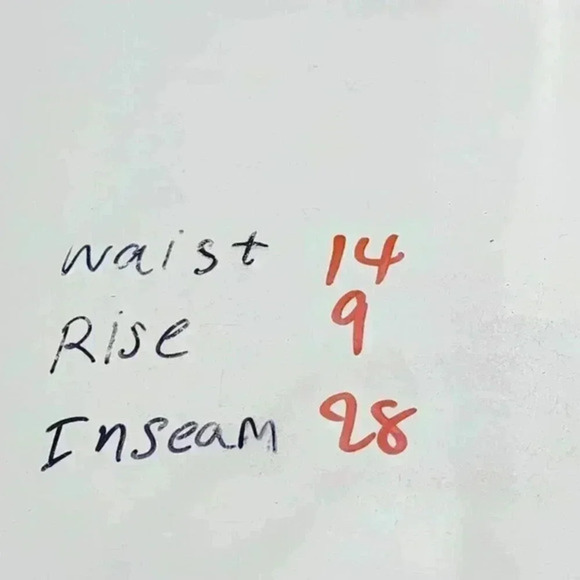 waist 14
Rise 9
Inseam 28